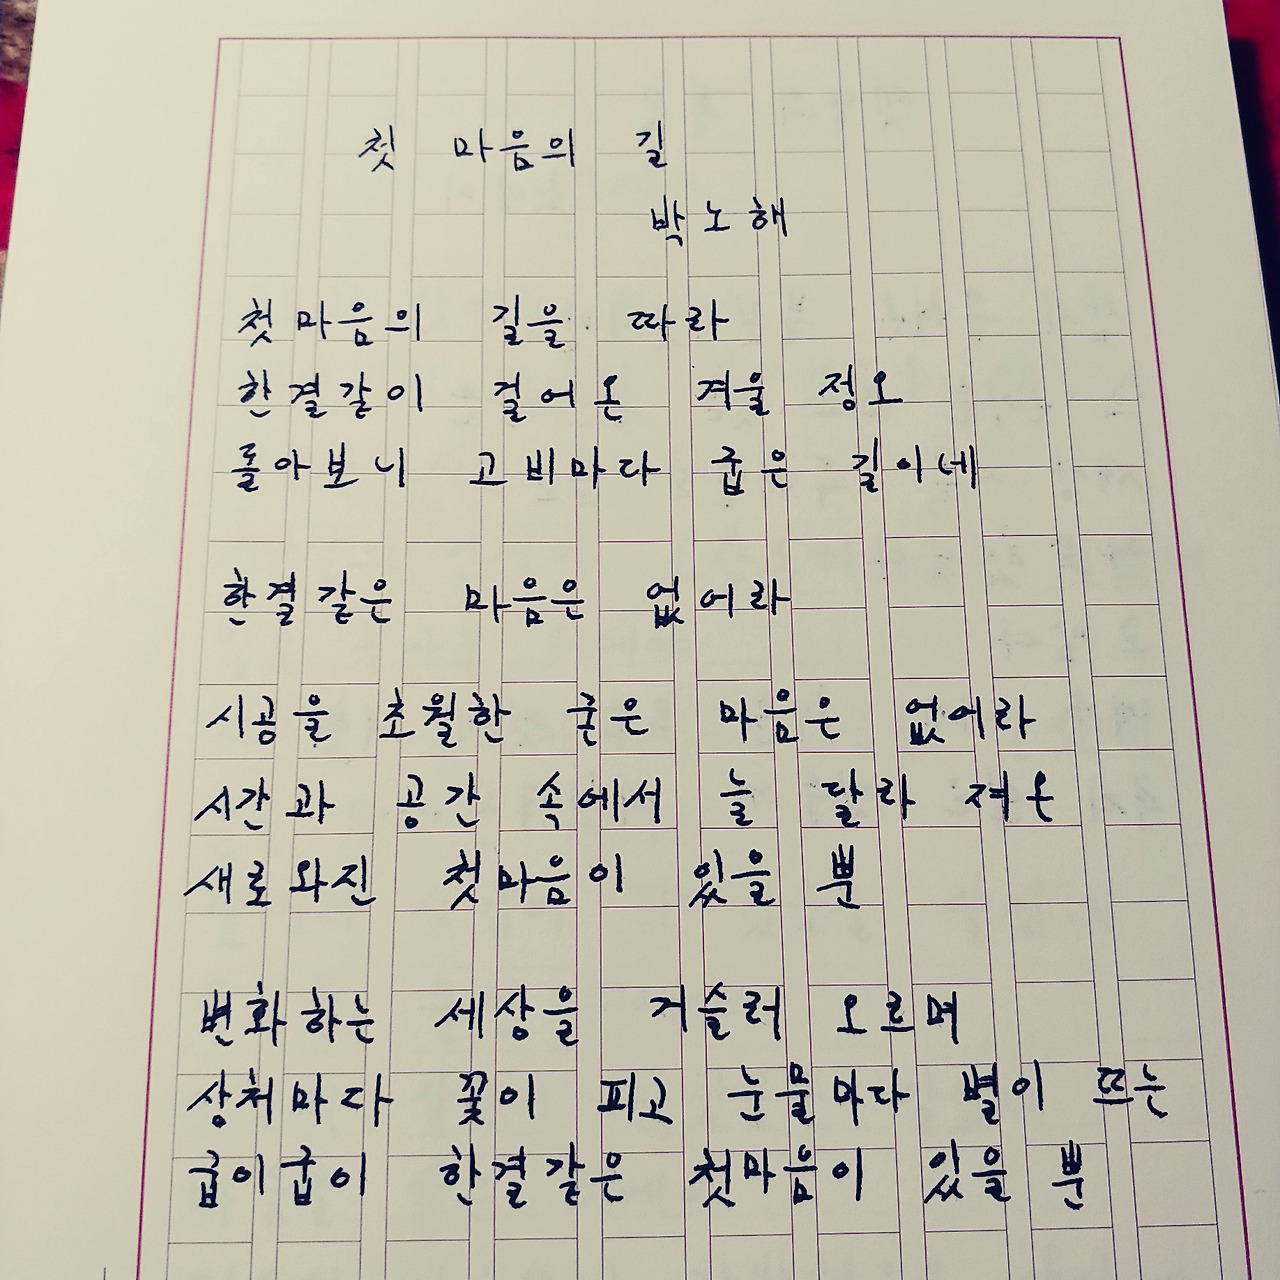 첫 마음의 길
박노해
첫마음의 길을 따라
한결같이 걸어온 겨울 정오
돌아보니 고비마다 굽은 길이네
한결같은 마음은 없어라
시공을 초월한 굳은 마음은 없어라
시간과 공간 속에서 늘 달라져온
새로와진 첫마음이 있을 뿐
변화하는 세상을 거슬러 오르며
상처마다 꽃이 피고 눈물마다 별이 뜨는
굽이굽이 한결같은 첫마음이 있을 뿐